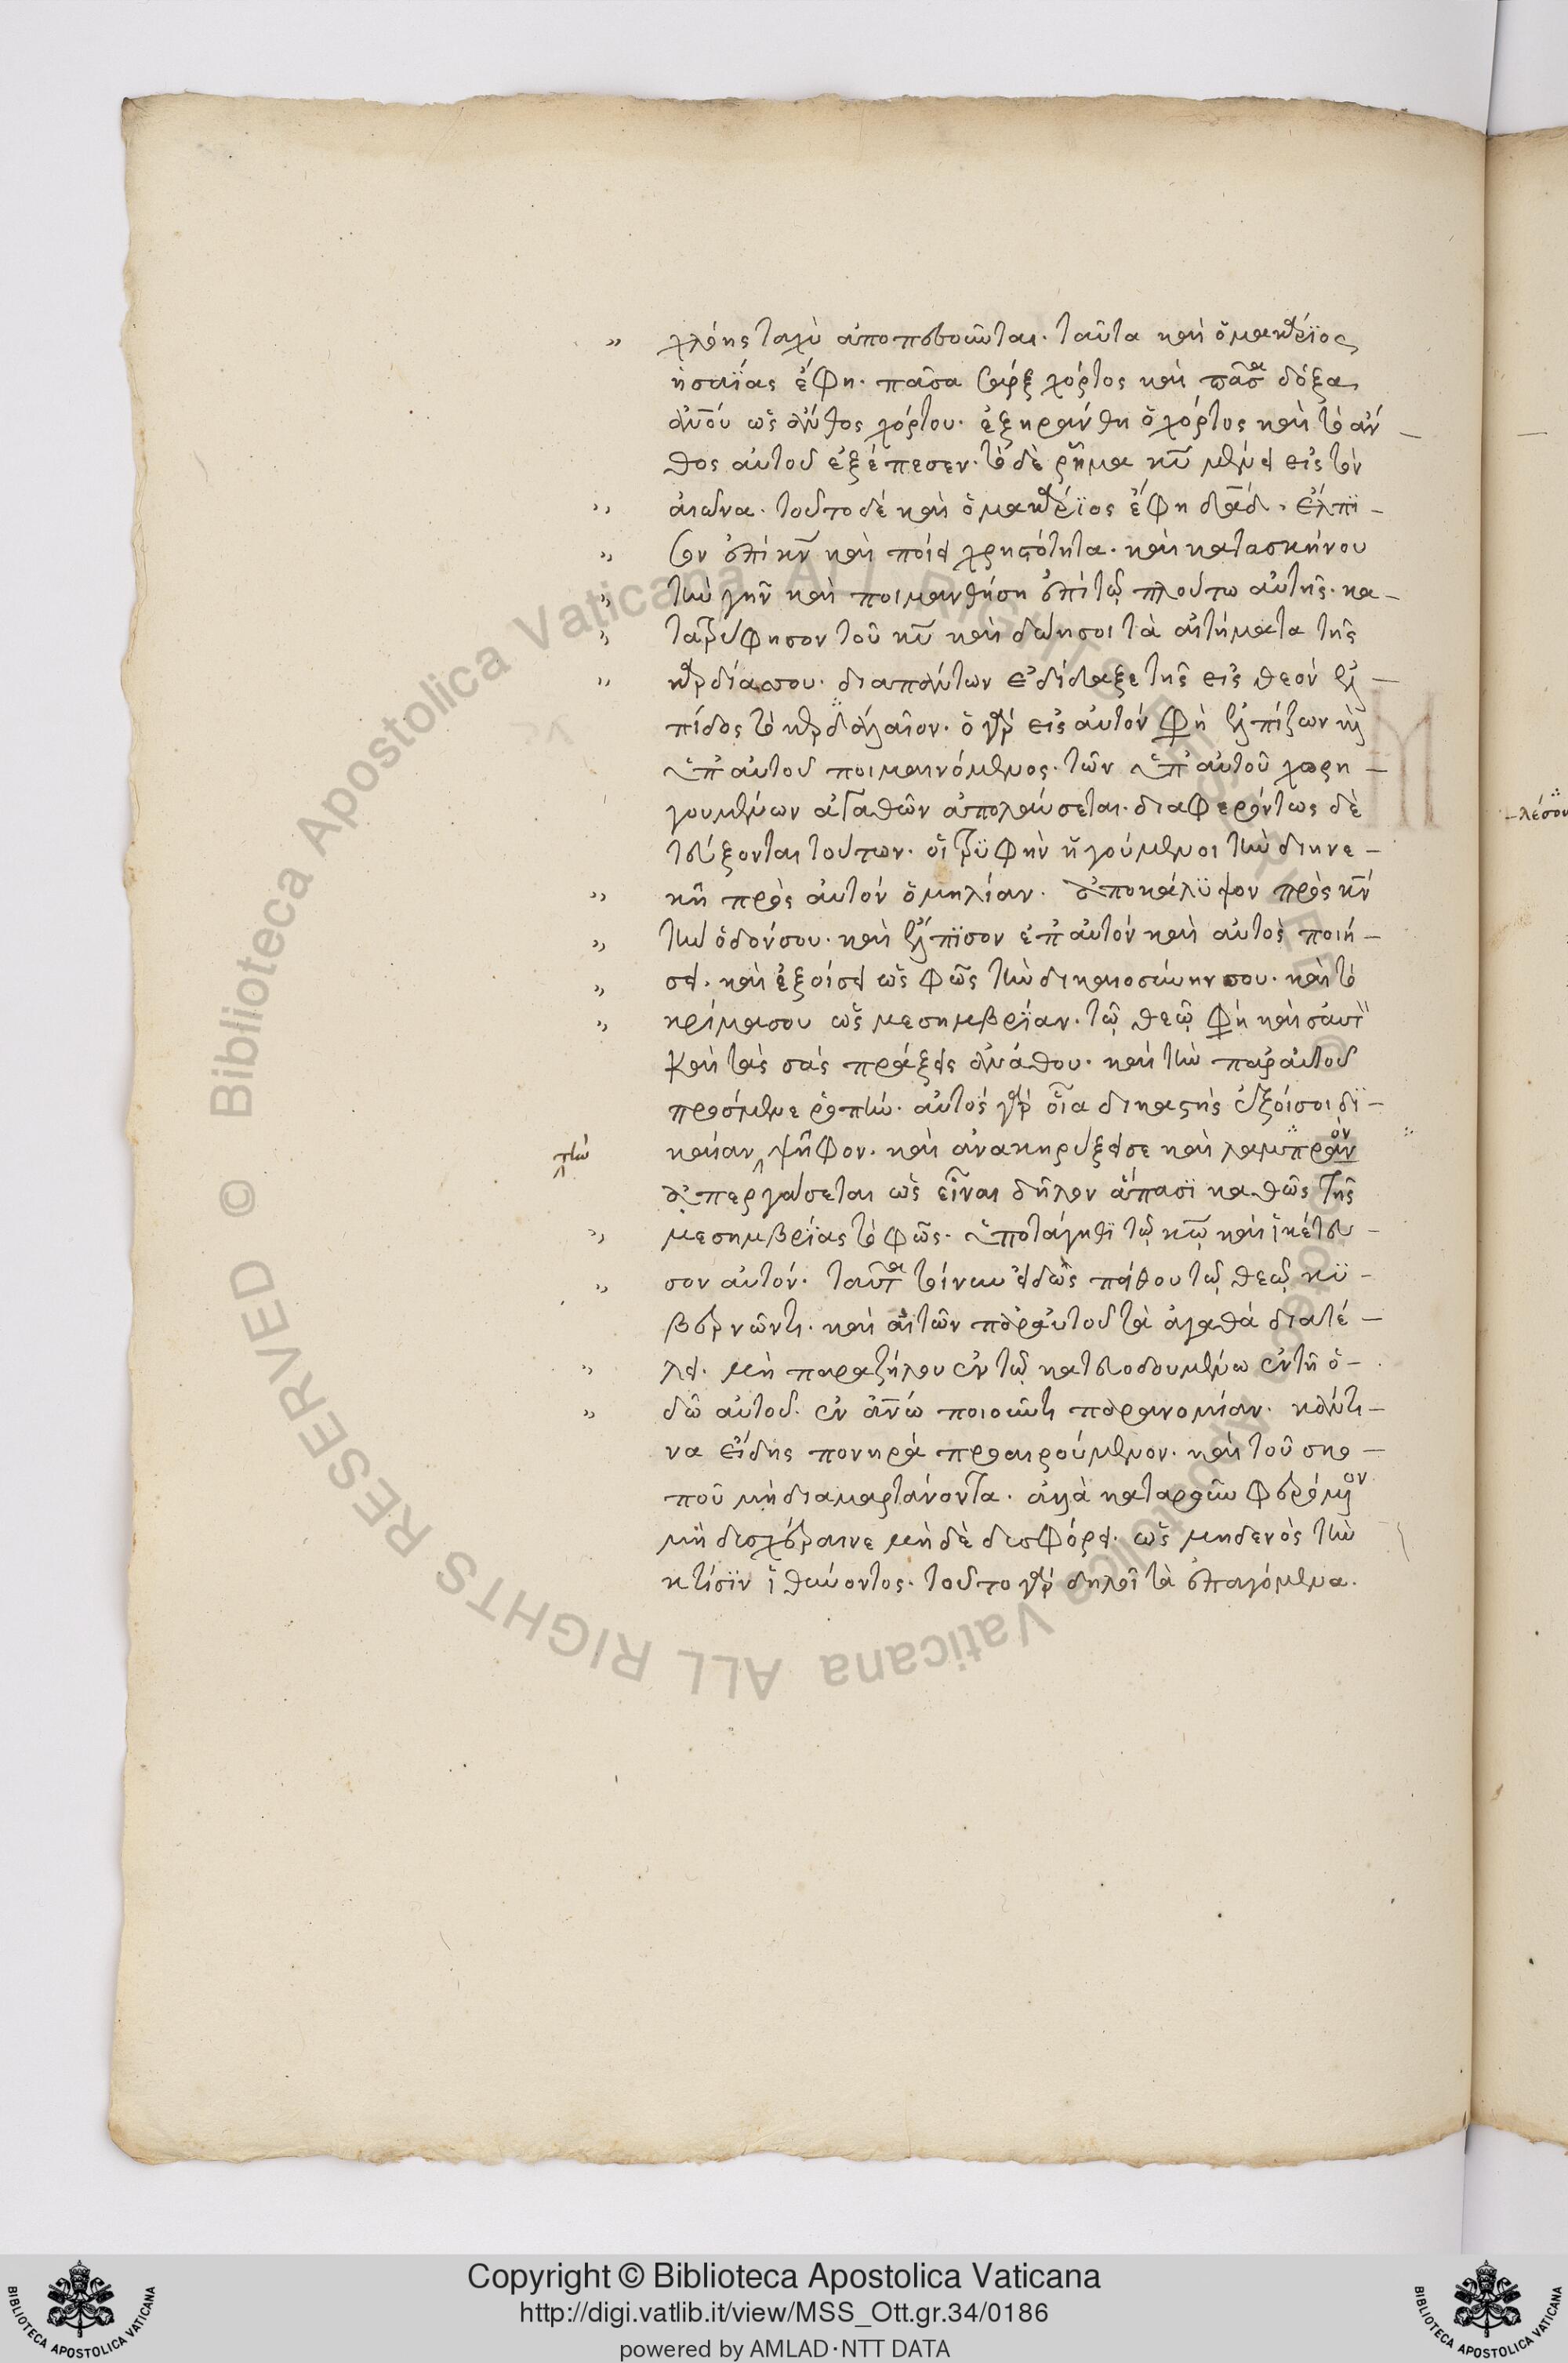 χλόης ταχὺ ἀποπεσοῦνται. ταῦτα καὶ ὁ μακάριος
ἡσαΐας ἔφη. πᾶσα σὰρξ χόρτος καὶ πᾶσα δόξα
ἀν̅ο̅υ̅ ὡς ἄνθος χόρτου. ἐξηράνθη ὁ χόρτος καὶ τὸ ἄν-
θος αὐτοῦ ἐξέπεσεν. τὸ δὲ ῥῆμα κ̅υ̅ μένει εἰς τὸν
αἰῶνα. τοῦτο δὲ καὶ ὁ μακάριος ἔφη δα̅δ̅. ἔλπι-
σον ἐπὶ κ̅ν̅ καὶ ποίει χρηστότητα. καὶ κατασκήνου
τὴν γῆν καὶ ποιμανθήση ἐπὶ τῷ πλούτω αὐτῆς. κα-
τατρύφησον τοῦ κ̅υ̅ καὶ δώη σοι τὰ αἰτήματα τῆς
καρδίας σου. διαπάντων ἐδίδαξε τῆς εἰς θεὸν ἐλ-
πίδος τὸ κερδαλαῖον. ὁ γὰρ εἰς αὐτὸν φὴ ἐλπίζων καὶ
ὑπ' αὐτοῦ ποιμαινόμενος. τῶν ὑπ' αὐτοῦ χορη-
γουμένων ἀγαθῶν ἀπολαύσεται. διαφερόντως δὲ
τεύξονται τούτων. οἱ τρυφὴν ἡγούμενοι τὴν διηνε-
κῆ πρὸς αὐτὸν ὁμηλίαν. ἀποκάλυψον πρὸς κ̅ν̅
τὴν ὁδόν σου. καὶ ἔλπισον ἐπ' αὐτὸν καὶ αὐτὸς ποιή-
σει. καὶ ἐξοίσει ὡς φῶς τὴν δικαιοσύνην σου. καὶ τὸ
κρίμα σου ὡς μεσημβρίαν. τῷ θεῷ φὴ καὶ σαυτὸν
καὶ τὰς σὰς πράξεις ἀνάθου. καὶ τὴν παρ' αὐτοῦ
πρόσμενε ῥοπήν. αὐτὸς γὰρ οἷα δικαστὴς ἐξοίσοι δι-
καίαν ψῆφον. καὶ ἀνακηρύξει σε καὶ λαμπρὰν όν
τὴν
ἀπεργάσεται ὡς εἶναι δῆλον ἅπασι καθὼς τῆς
μεσημβρίας τὸ φῶς. ὑποτάγηθι τῷ κ̅ω̅ καὶ ἱκέτευ-
σον αὐτόν. ταῦτα τοίνυν εἰδὼς πείθου τῷ θεῷ κυ-
βερνῶντι. καὶ αἰτῶν παρ' αὐτοῦ τὰ ἀγαθὰ διατέ-
λει. μὴ παραζήλου ἐν τῷ κατευοδουμένω ἐν τῆ ὁ-
δῶ αὐτοῦ. ἐν ἀν̅ω̅ ποιοῦντι παρανομίαν. κἄν τι-
να εἴδης πονηρὰ προαιρούμενον. καὶ τοῦ σκο-
ποῦ μὴ διαμαρτάνοντα. ἀλλὰ καταροῦν φερόμενον
μὴ δυσχέραινε μὴ δὲ δυσφόρει. ὡς μηδενὸς τὴν
κτίσιν ἰθύνοντος. τοῦτο γὰρ δηλοῖ τὰ ἐπαγόμενα.
-λέσου
© Biblioteca Apostolica Vaticana ALL RIGHTS RESERVED © Biblioteca Apostolica Vaticana ALL RIGHTS RESERVED
Copyright © Biblioteca Apostolica Vaticana
http://digi.vatlib.it/view/MSS_Ott.gr.34/0186
powered by AMLAD·NTT DATA
BIBLIOTECA APOSTOLICA VATICANA
BIBLIOTECA APOSTOLICA VATICANA